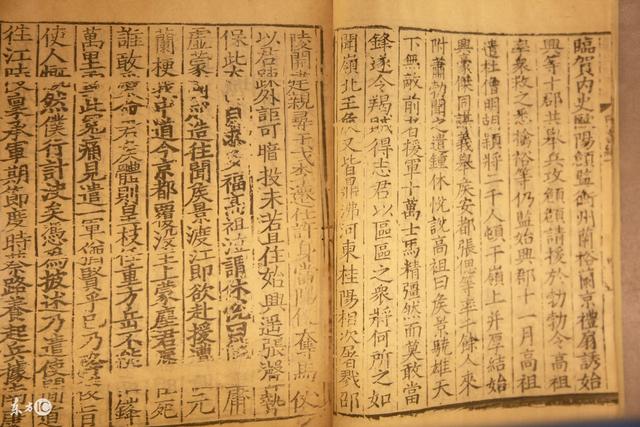 臨賀內史歐陽頠監衡州蘭裕蘭京禮扇誘始
興等十郡共舉兵攻頠頠請援於勃勃令高祖
率衆救之悉擒裕等仍監始興郡十一月高祖
遣杜僧明胡穎將二千人頓于嶺上并厚結始
興豪傑同謀義舉侯安都張偲等率千餘人來
附蕭勃聞之遣鍾休悅說高祖曰侯景驍雄天
下無敵前者援軍十萬士馬精彊然而莫敢當
鋒遂令羯賊得志君以區區之衆將何所之如
聞嶺北王侯又皆鼎沸河東桂陽相次屠戮邵
陵開建親尋干戈李遷仕許身當陽便奪馬仗
以君疎外詎可暗投未若且住始興遙張聲勢
保此太自求多福高祖泣謂休悅曰庸
虛蒙國成造往聞侯景渡江即欲赴援遭元
蘭梗我中道今京都覆沒主上蒙塵君臣死
誰敢愛命君侯體則皇枝任重方岳不能鋒
萬里雪此冤痛見遣一軍猶賢乎已乃旨
使人慨然僕行計決矣憑為披述乃遣使間道
往江陵稟承軍期節度時蔡路養起兵據南
东方IC